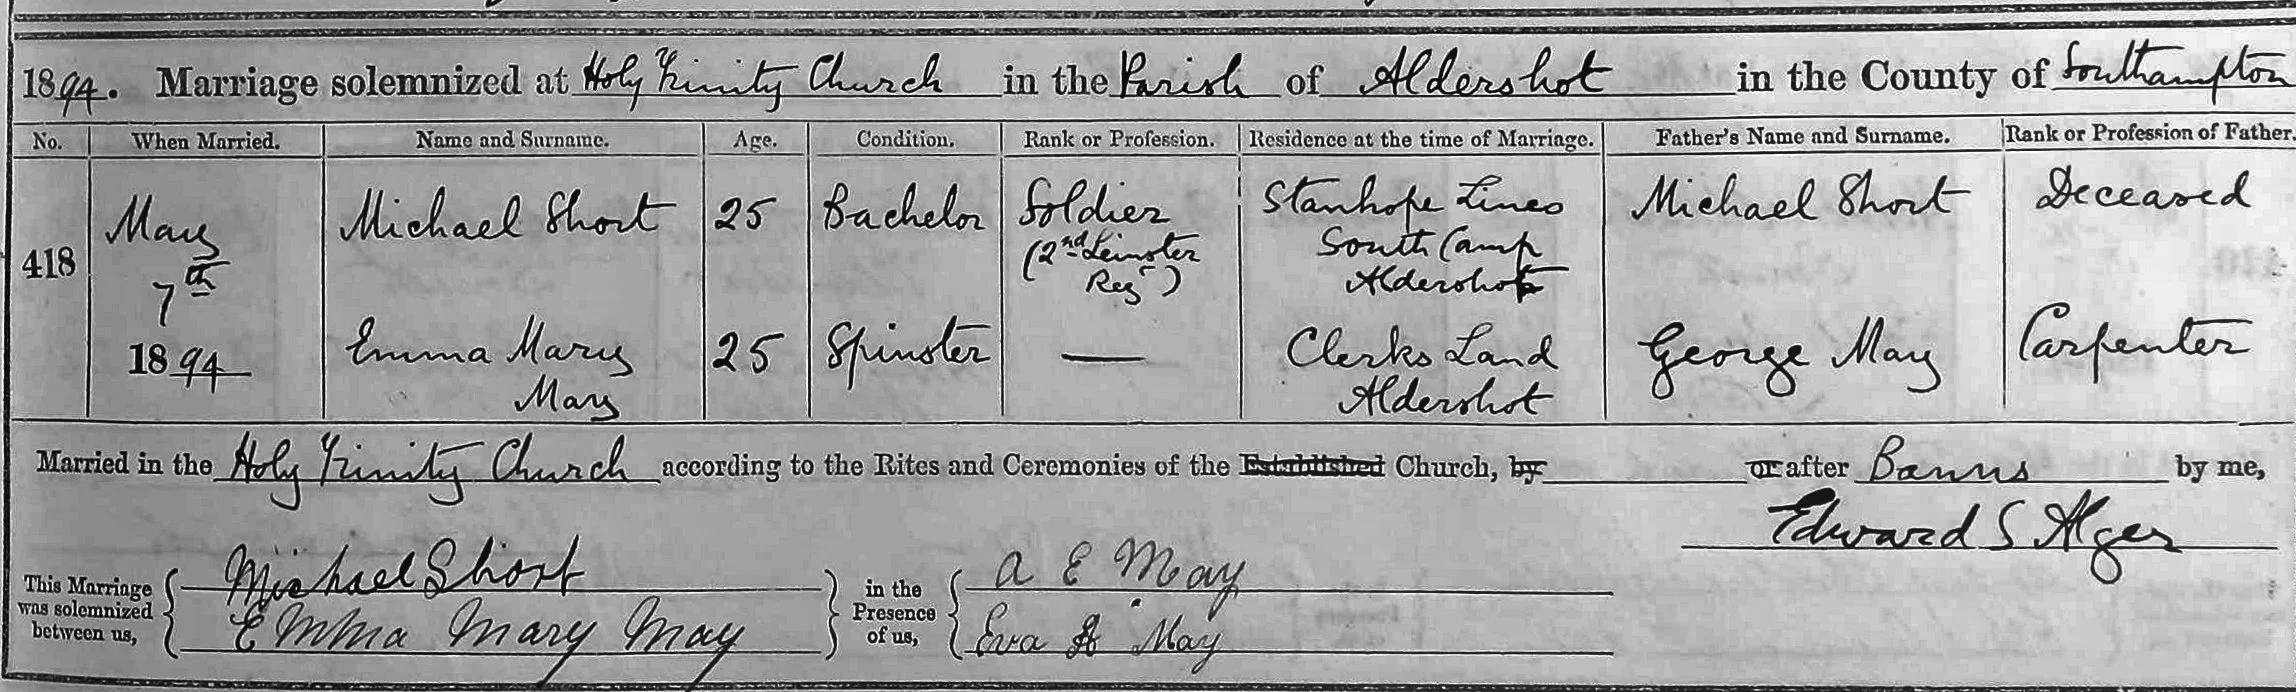 1894. Marriage solemnized at Holy Trinity Church in the Parish of Aldershot in the County of Southampton
No. When Married. Name and Surname. Age. Condition. Rank or Profession. Residence at the time of Marriage. Father's Name and Surname. Rank or Profession of Father.
418 May 7th 1894
Michael Short 25 Bachelor Soldier (2nd Leinster Regt) Stanhope Lines South Camp Aldershot Michael Short Deceased
Emma Mary May 25 Spinster — Clerks Land Aldershot George May Carpenter
Married in the Holy Trinity Church according to the Rites and Ceremonies of the Established Church, by or after Banns by me,
Edward S Alger
This Marriage was solemnized between us, Michael Short Emma Mary May
in the Presence of us, A E May Eva May